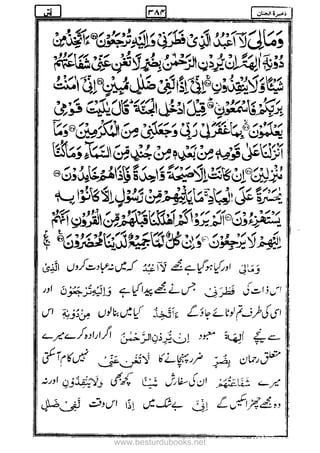 ذخيرة الجنان ٣٨٣ يٰسٓ
وَمَالِىَ لَآ اَعْبُدُ الَّذِىْ فَطَرَنِىْ وَاِلَيْهِ تُرْجَعُوْنَ ءَاَتَّخِذُ مِنْ
دُوْنِهٖٓ اٰلِهَةً اِنْ يُّرِدْنِ الرَّحْمٰنُ بِضُرٍّ لَّا تُغْنِ عَنِّىْ شَفَاعَتُهُمْ
شَيْئًا وَّلَا يُنْقِذُوْنِ اِنِّىْٓ اِذًا لَّفِىْ ضَلٰلٍ مُّبِيْنٍ اِنِّىْٓ اٰمَنْتُ
بِرَبِّكُمْ فَاسْمَعُوْنِ قِيْلَ ادْخُلِ الْجَنَّةَ قَالَ يٰلَيْتَ قَوْمِىْ
يَعْلَمُوْنَ بِمَا غَفَرَلِىْ رَبِّىْ وَجَعَلَنِىْ مِنَ الْمُكْرَمِيْنَ وَمَآ
اَنْزَلْنَا عَلٰى قَوْمِهٖ مِنْۢ بَعْدِهٖ مِنْ جُنْدٍ مِّنَ السَّمَآءِ وَمَا كُنَّا
مُنْزِلِيْنَ اِنْ كَانَتْ اِلَّا صَيْحَةً وَّاحِدَةً فَاِذَا هُمْ خٰمِدُوْنَ
يٰحَسْرَةً عَلَى الْعِبَادِ مَا يَاْتِيْهِمْ مِّنْ رَّسُوْلٍ اِلَّا كَانُوْا بِهٖ
يَسْتَهْزِءُوْنَ اَلَمْ يَرَوْا كَمْ اَهْلَكْنَا قَبْلَهُمْ مِّنَ الْقُرُوْنِ اَنَّهُمْ
اِلَيْهِمْ لَا يَرْجِعُوْنَ وَاِنْ كُلٌّ لَّمَّا جَمِيْعٌ لَّدَيْنَا مُحْضَرُوْنَ
وَمَالِىَ اور کیا ہو گیا ہے مجھے لَآ اَعْبُدُ کہ میں نہ عبادت کروں الَّذِىْ
اس ذات کی فَطَرَنِىْ جس نے مجھے پیدا کیا ہے وَاِلَيْهِ تُرْجَعُوْنَ اور
اسی کی طرف تم لوٹائے جاؤ گے ءَاَتَّخِذُ کیا میں بنالوں مِنْ دُوْنِهٖٓ اس
سے نیچے اٰلِهَةً معبود اِنْ يُّرِدْنِ الرَّحْمٰنُ اگر ارادہ کرے میرے
متعلق رحمان بِضُرٍّ ضرر پہنچانے کا لَّا تُغْنِ عَنِّىْ نہیں کام آسکتی
میرے شَفَاعَتُهُمْ ان کی سفارش شَيْئًا کچھ بھی وَّلَا يُنْقِذُوْنِ اور نہ
وہ مجھے چھڑا سکیں گے اِنِّىْٓ بے شک میں اِذًا اس وقت لَّفِىْ ضَلٰلٍ
www.besturdubooks.net